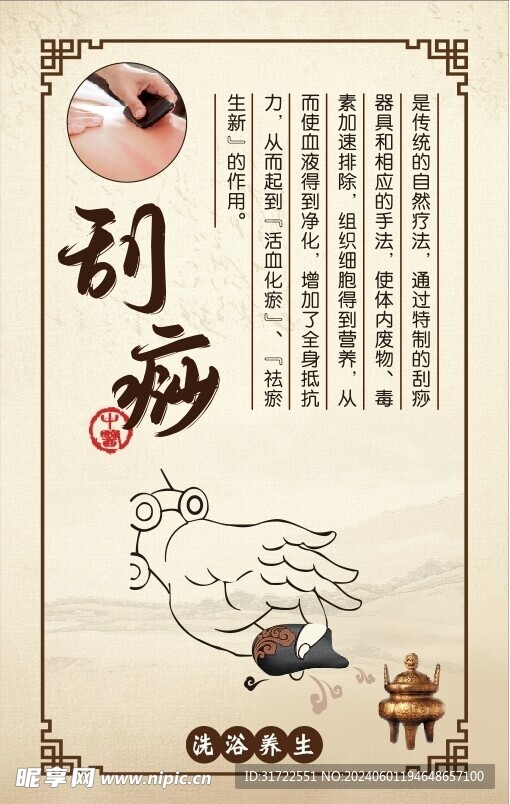 是传统的自然疗法，通过特制的刮痧
器具和相应的手法，使体内废物、毒
素加速排除，组织细胞得到营养，从
而使血液得到净化，增加了全身抵抗
力，从而起到『活血化瘀』、『祛瘀
生新』的作用。
刮痧
中醫
洗浴养生
昵享网 www.nipic.cn
ID:31722551 NO:20240601194648657100